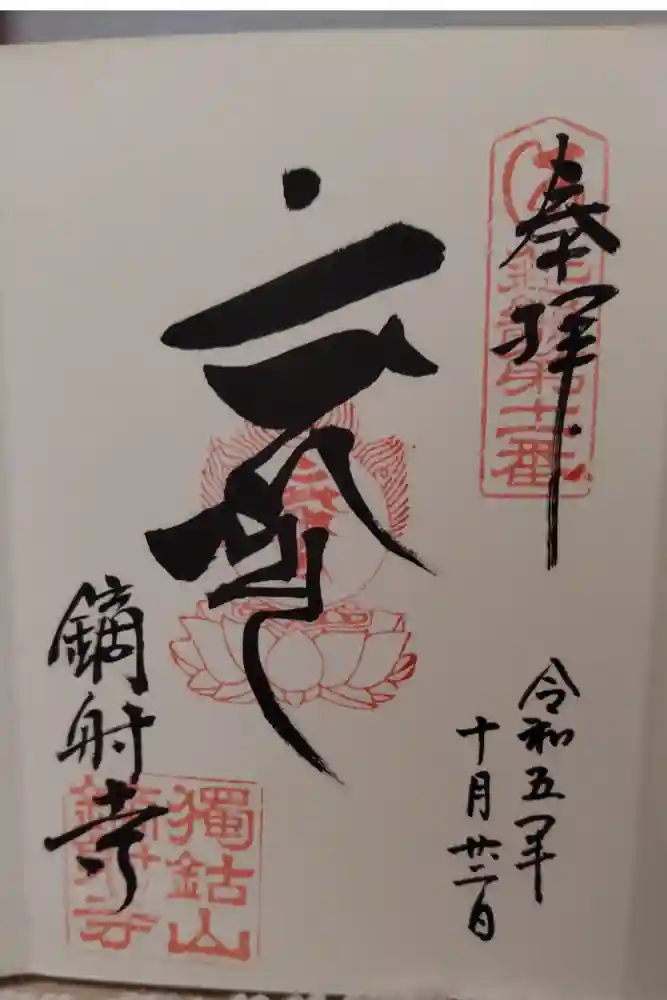 奉拝
令和五年
十月廿二日
鏑射寺
獨鈷山
鏑射寺